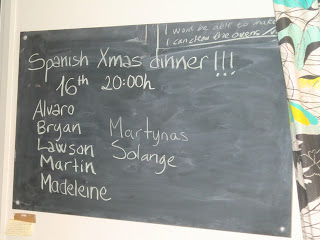 I wont be able to make
I can clean the ovens
Spanish Xmas dinner!!!
16th 20:00h
Alvaro
Bryan
Lawson
Martin
Madeleine
Martynas
Solange